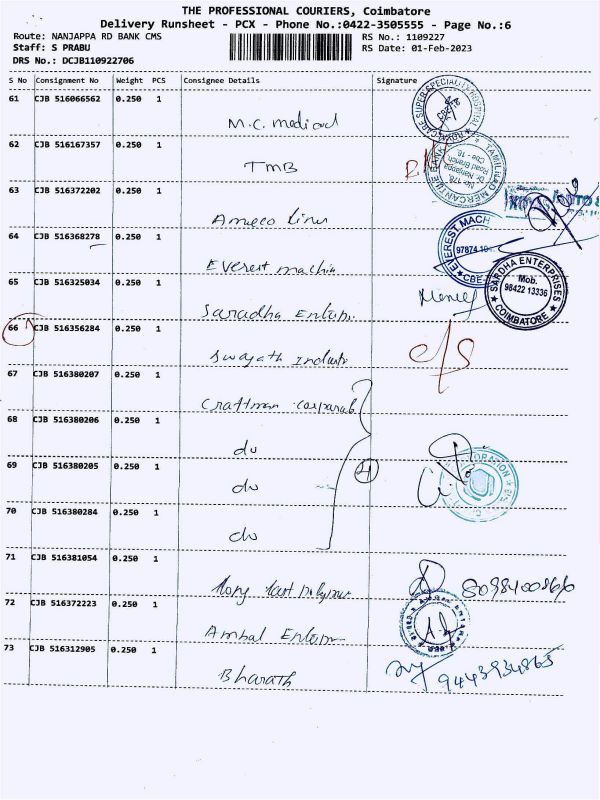 THE PROFESSIONAL COURIERS, Coimbatore
Delivery Runsheet - PCX - Phone No.:0422-3505555 - Page No.:6
Route: NANJAPPA RD BANK CMS RS No.: 1109227
Staff: S PRABU RS Date: 01-Feb-2023
DRS No.: DCJB110922706
S No Consignment No Weight PCS Consignee Details Signature
61 CJB 516066562 0.250 1
M.C. medical
62 CJB 516167357 0.250 1
TMB
TAMILNAD MERCANTILE BANK
Dr. Nanjappa
Road Branch
Cbe - 18.
63 CJB 516372202 0.250 1
64 CJB 516368278 0.250 1
Everest machin
EVEREST MACH
97874 10
CBE
65 CJB 516325034 0.250 1
Saradha Enterp.
SARDHA ENTERPRISES
Mob.
98422 13336
COIMBATORE
66 CJB 516356284 0.250 1
Swayath Industr
c/s
67 CJB 516380207 0.250 1
Craftman
68 CJB 516380206 0.250 1
do
69 CJB 516380205 0.250 1
do
4
70 CJB 516380284 0.250 1
do
71 CJB 516381054 0.250 1
72 CJB 516372223 0.250 1
Ambal Enterp
73 CJB 516312905 0.250 1
Bharath
9443934863